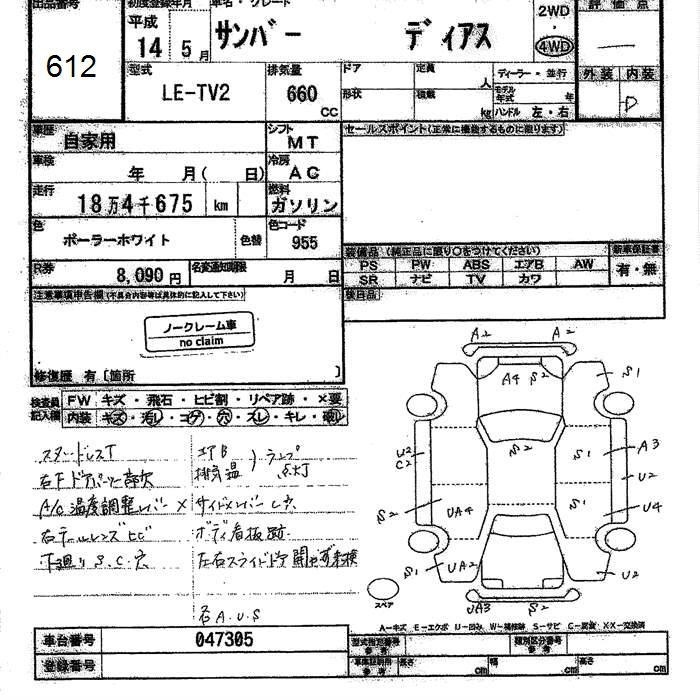 出品番号 初度登録年月 車名・グレード 2WD 評価点
612 平成 14 5月 サンバー ディアス ・ 4WD —
型式 排気量 ドア 定員 人 ディーラー・並行 外装 内装
LE-TV2 660 CC 形状 積載 kg モデル年式 年 ハンドル 左・右 D
車歴 自家用 シフト MT セールスポイント(正常に機能するものに限ります)
車検 年 月( 日) 冷房 AC
走行 18万4千675 km 燃料 ガソリン
色 ポーラーホワイト 色替 色コード 955
装備品 (純正品に限り○をつけてください) 新車保証書
PS PW ABS エアB AW 有・無
SR ナビ TV カワ
R券 8,090円 名変通知期限 月 日
後日品
注意事項申告欄(不具合内容等は具体的に記入して下さい)
ノークレーム車
no claim
修復歴 有〔箇所 〕
検査員記入欄 FW キズ・飛石・ヒビ割・リペア跡・×要
内装 キズ・汚レ・コゲ・穴・スレ・キレ・破レ
スタッドレスT エアB 排気温 ランプ点灯
A/C温度調整レバー× サイドメンバーC穴
右テールレンズヒビ ボディ看板跡
下廻りS.C.穴 左右スライドドア開かず未検
右A.U.S
A2 A2
A4 S2
S1
U2 C2 S2 S1 A3
U2
S2 UA4 S1 U4
S1 UA2 U2
スペア UA3 S2
A—キズ E—エクボ U—凹み W—補修跡 S—サビ C—腐食 XX—交換済
車台番号 047305 型式指定番号 参考 類別区分番号 参考
登録番号 参考 長さ cm 幅 cm 高さ cm